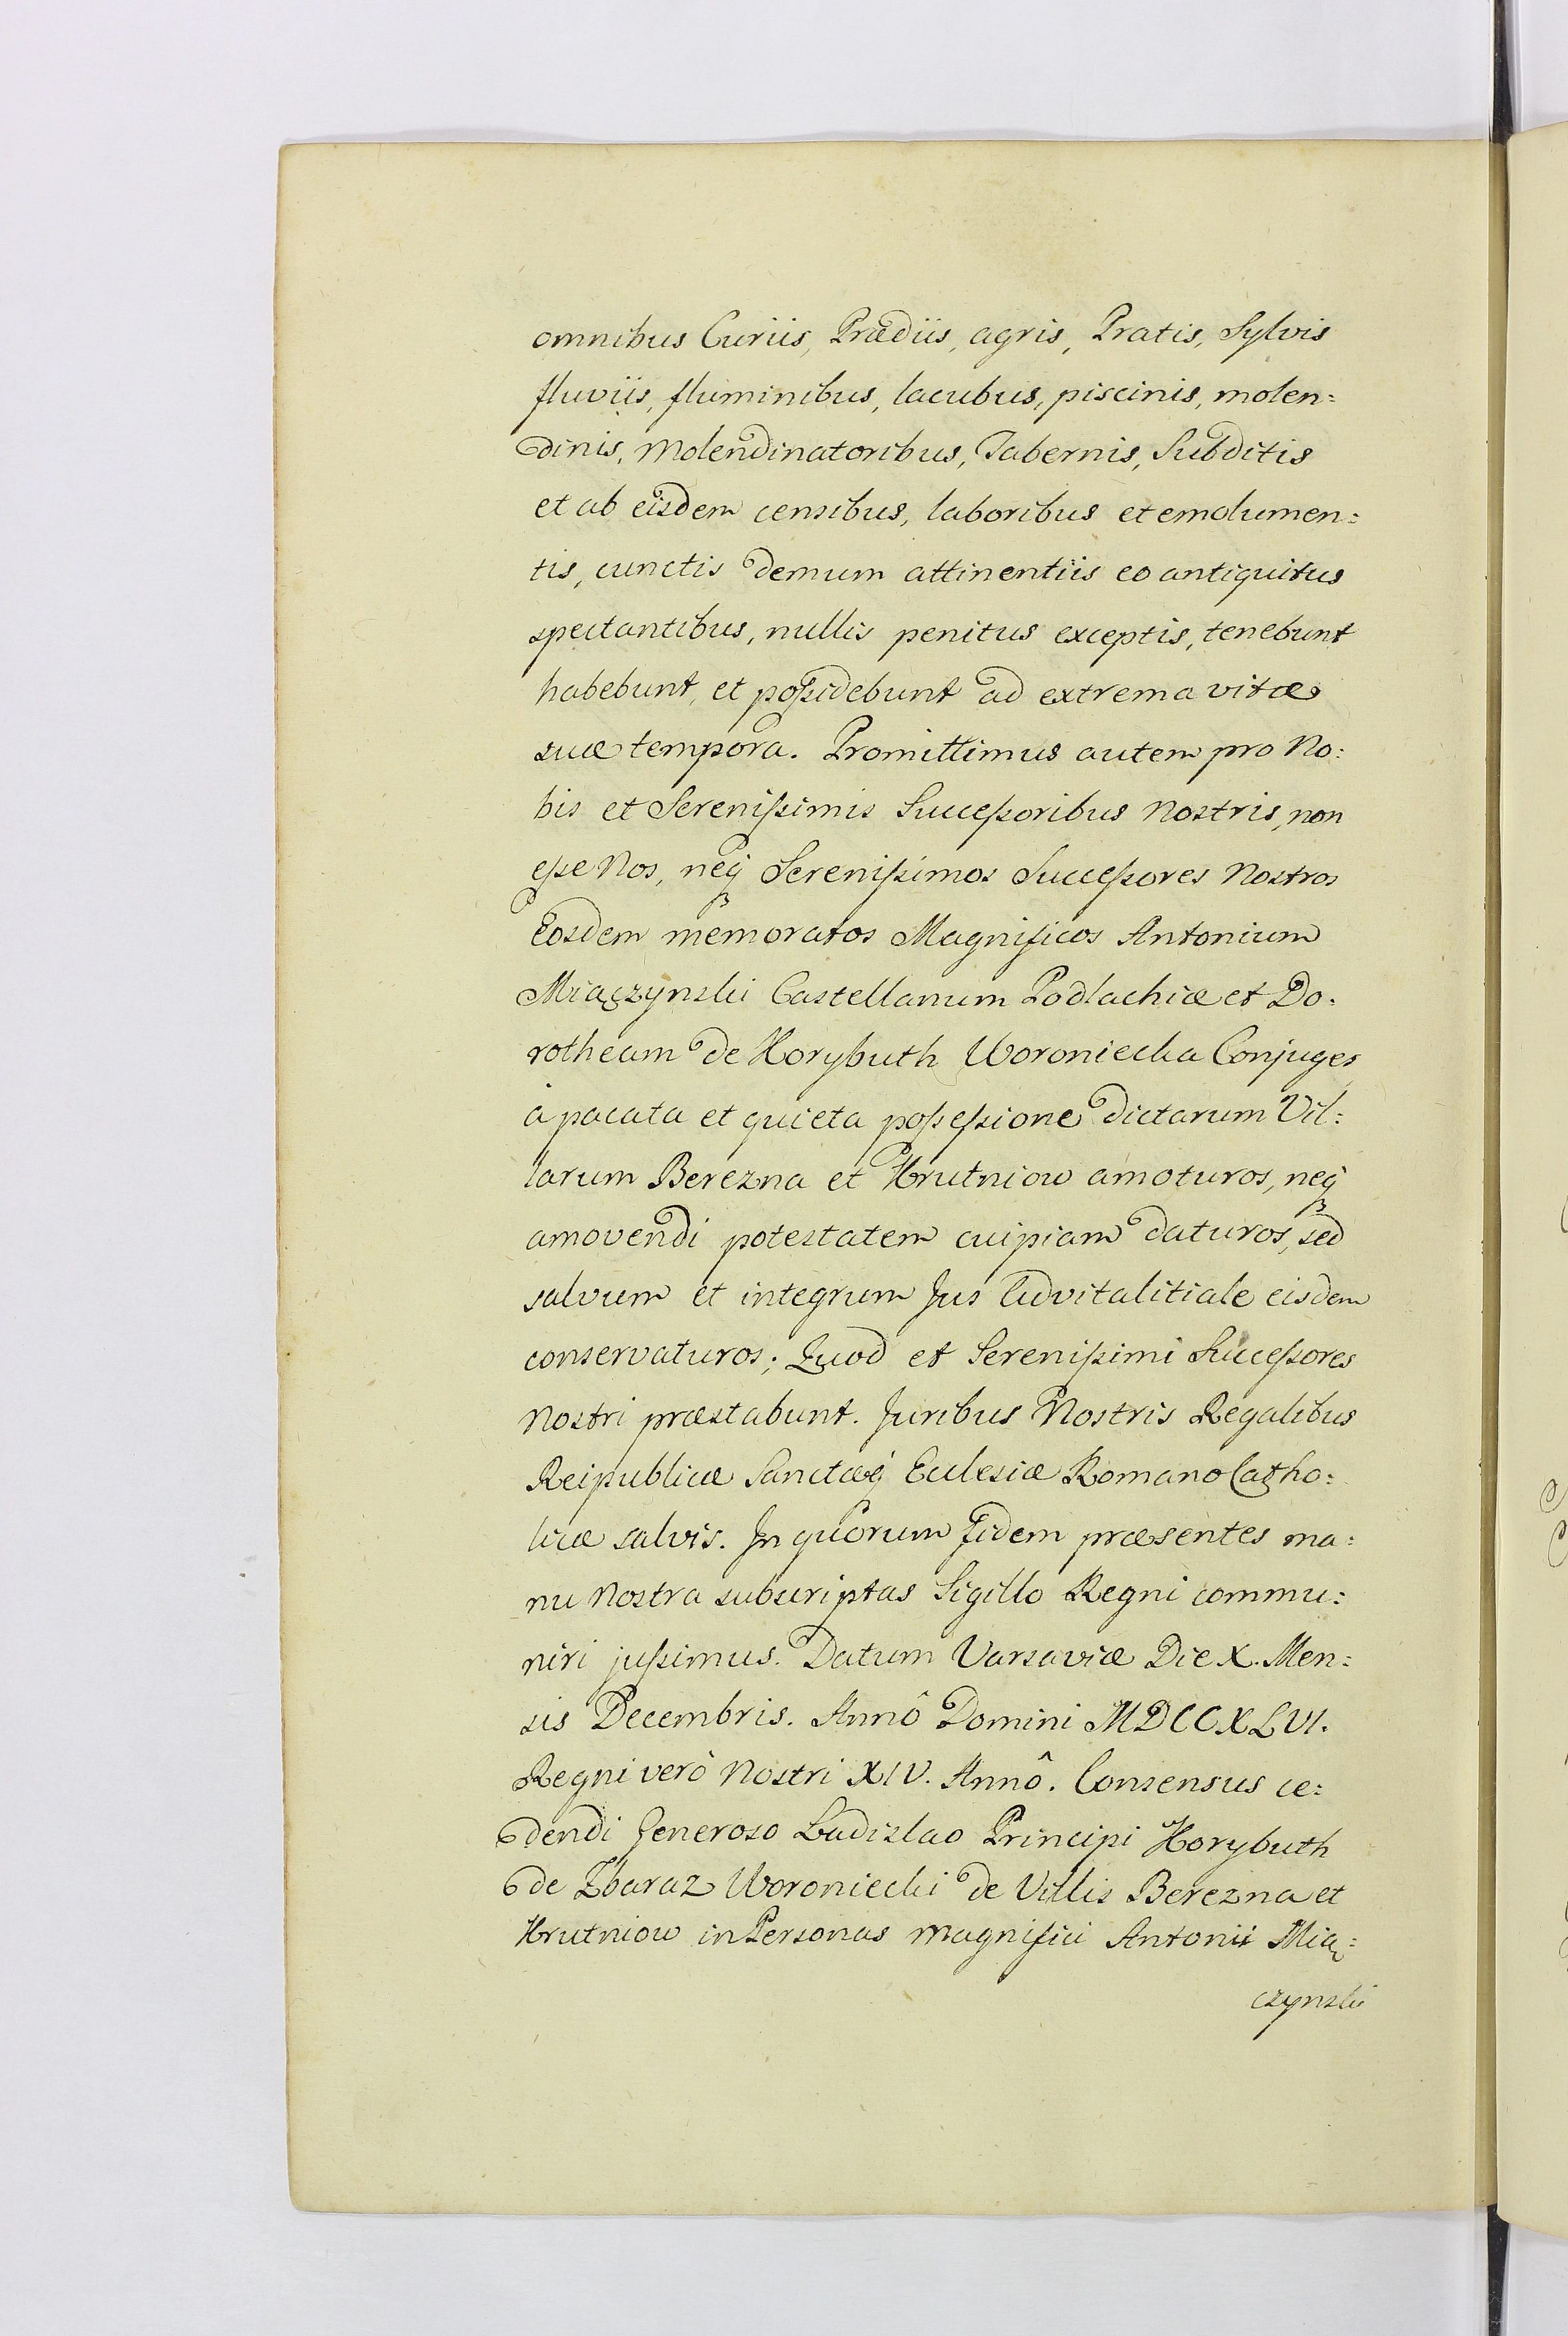 omnibus Curiis, Prædiis, agris, Pratis, Sylvis
fluviis, fluminibus, lacubus, piscinis, molen=
dinis, Molendinatoribus, Tabernis, Subditis
et ab eisdem censibus, laboribus et emolumen=
tis, cunctis demum attinentiis eo antiquitus
spectantibus, nullis penitus exceptis, tenebunt
habebunt, et poßidebunt ad extrema vitæ
suæ tempora. Promittimus autem pro No=
bis et Serenißimis Succeßoribus Nostris, non
eße Nos, neq́ Serenißimos Succeßores Nostros
Eosdem memoratos Magnificos Antonium
Miączynski Castellanum Podlachiæ et Do=
rotheam de Korybuth Woroniecka Conjuges
à pacata et quieta poßeßione dictarum Vil=
larum Berezna et Krutniow amoturos, neq́
amovendi potestatem cuipiam daturos, sed
salvum et integrum Jus Advitalitiale eisdem
conservaturos; Quod et Serenißimi Succeßores
Nostri præstabunt. Juribus Nostris Regalibus
Reipublicæ Sanctæq́ Eclesiæ Romano Catho=
licæ salvis. In quorum fidem præsentes ma=
nu Nostra subscriptas Sigillo Regni commu=
niri jußimus. Datum Varsaviæ Die X. Men=
sis Decembris. Annô Domini MDCCXLVI.
Regni verò Nostri XIV. Annô. Consensus ce=
dendi Generoso Ladislao Principi Korybuth
de Zbaraz Woroniecki de Villis Berezna et
Krutniow in Personas Magnifici Antonii Mią=
czynski